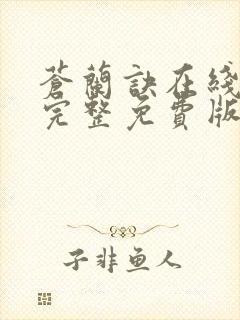 蒼蘭訣在綫
完整免費版
子非鱼人